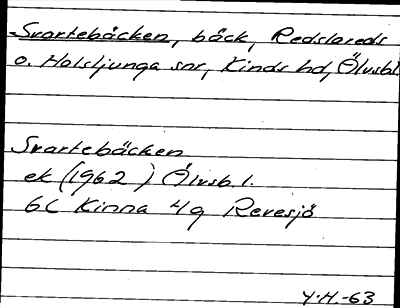 Svartebäcken, bäck, Redslareds
o. Holsljunga snr, Kinds hd, Älvsbl.
Svartebäcken
ek (1962) Älvsb. l.
6C Kinna 4g Revesjö
Y.H.-63